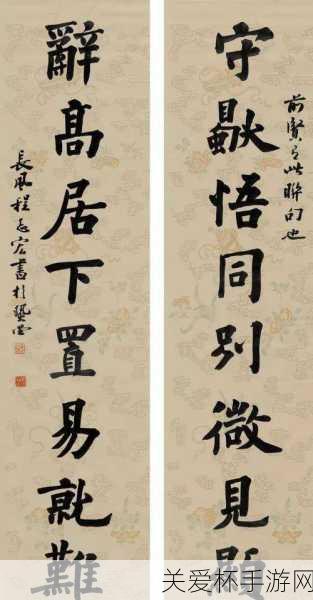 守默悟同別微見顯
前賢有此聯句也
辭高居下置易就難
長風程宏書於藝
关爱杯手游网